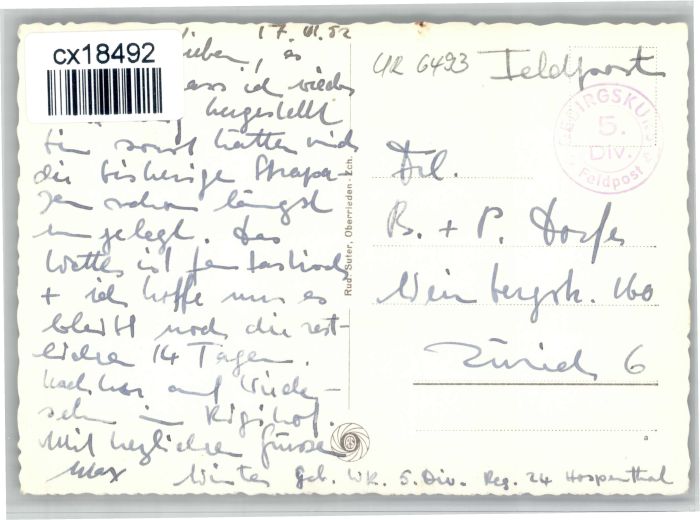 cx18492
17. III. 52
ieben, es
ass ich wieder
hergestellt
bin sonst hätten mich
die bisherige Strapa-
zen schon längst
umgelegt. Das
Wetter ist fantastisch
+ ich hoffe nur es
bleibt noch die rest-
lichen 14 Tagen.
Nachher auf Wieder-
sehn im Rigihof.
Mit herzlichen Grüssen
Max
Winter Geb. WK. 5. Div. Reg. 24 Hospenthal
Rud. Suter, Oberrieden-Zch.
UR 6493 Feldpost
GEBIRGSKU
5.
Div.
Feldpost
Frl.
B. + P. Dorfer
Weinbergstr. 160
Zürich 6
a